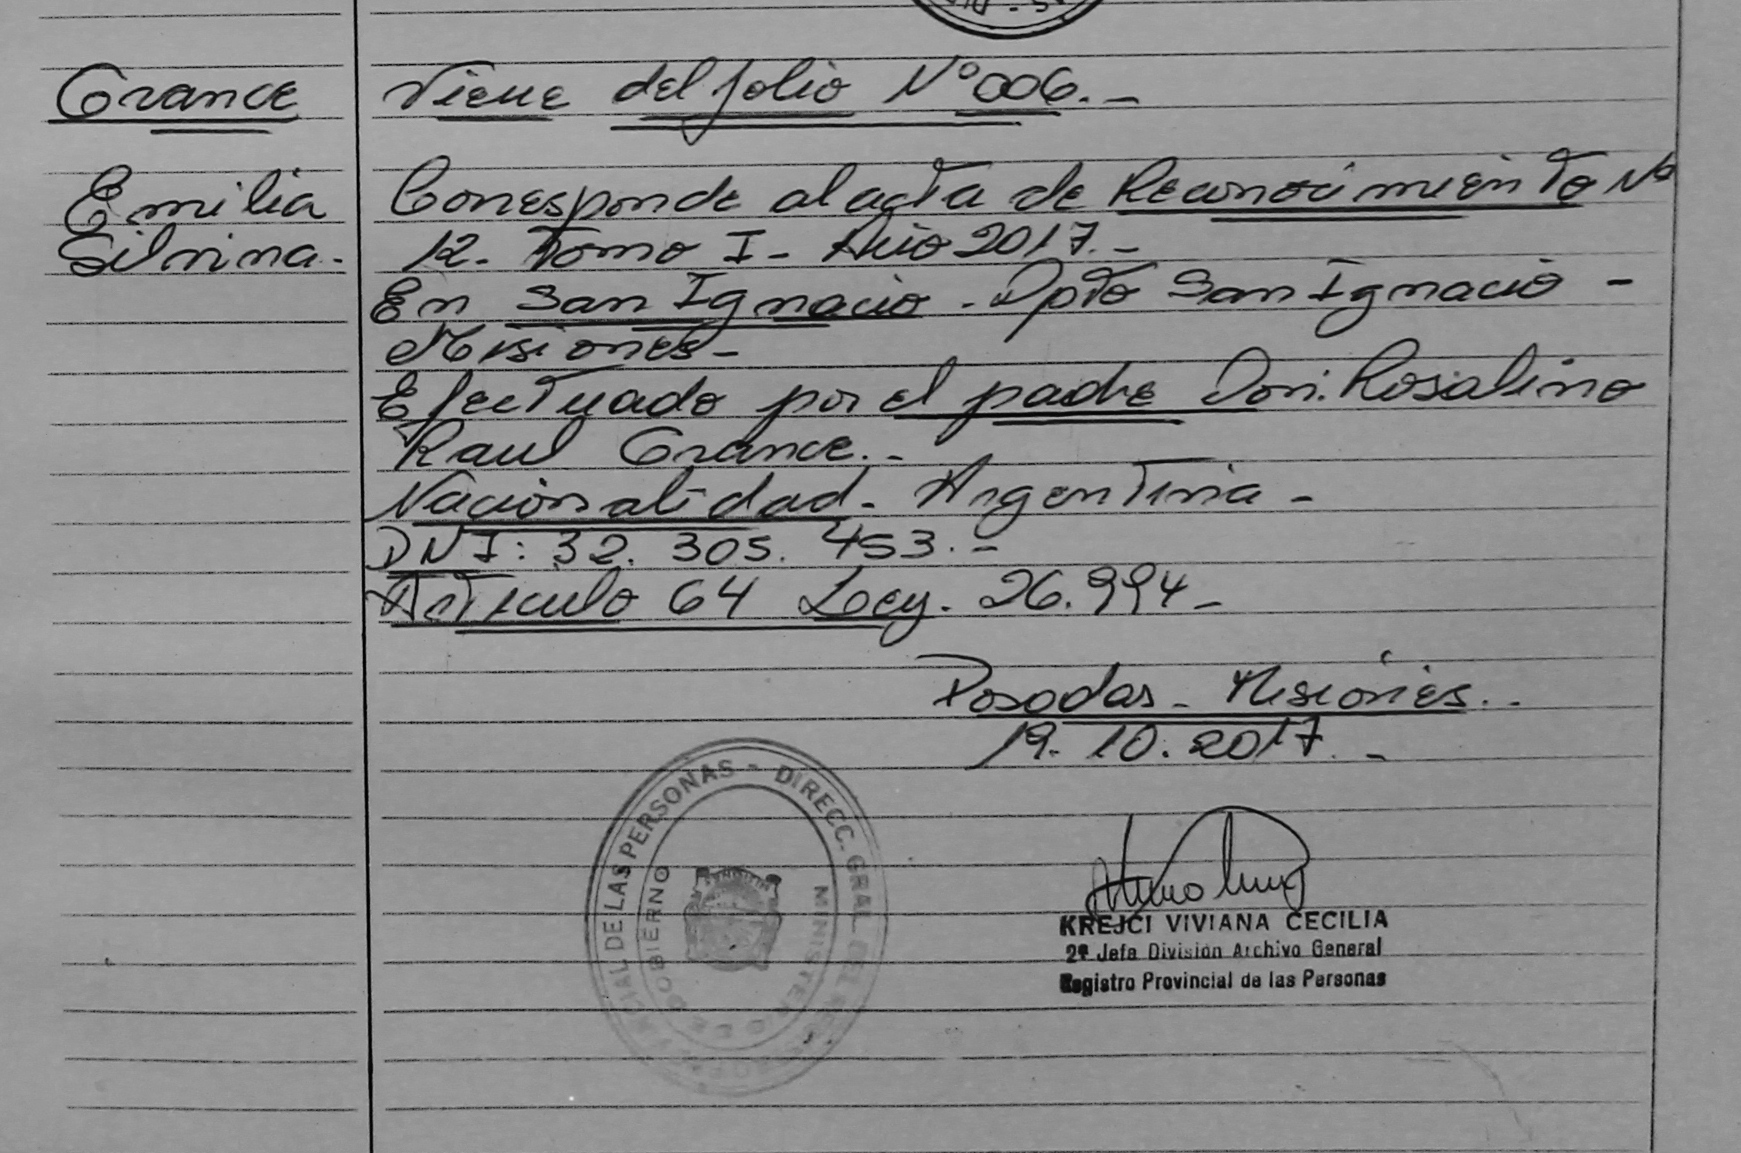 Grance
Emilia
Silvina.
Viene del folio N° 006.-
Corresponde al acta de Reconocimiento N°
12. Tomo I - Año 2017.-
En San Ignacio - Dpto San Ignacio -
Misiones -
Efectuado por el padre Don. Rosalino
Raul Grance.-
Nacionalidad - Argentina -
DNI: 32. 305. 453.-
Articulo 64 Ley. 26.994 -
Posadas - Misiones.-
19. 10. 2017.-
DIRECC. GRAL. DEL REG. PROVINCIAL DE LAS PERSONAS -
MINISTERIO DE GOBIERNO
KREJCI VIVIANA CECILIA
2ª Jefe División Archivo General
Registro Provincial de las Personas